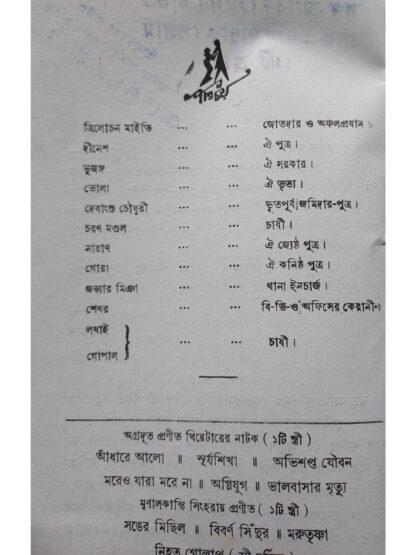 পরিচয়
ত্রিলোচন মাইতি ... ... জোতদার ও অঞ্চলপ্রধান।
দীনেশ ... ... ঐ পুত্র।
ভুজঙ্গ ... ... ঐ সরকার।
ভোলা ... ... ঐ ভৃত্য।
দেবাংশু চৌধুরী ... ... ভূতপূর্ব জমিদার-পুত্র।
চরণ মণ্ডল ... ... চাষী।
নারাণ ... ... ঐ জ্যেষ্ঠ পুত্র।
গোরা ... ... ঐ কনিষ্ঠ পুত্র।
জব্বার মিঞা ... ... থানা ইনচার্জ।
শেখর ... ... বি-ডি-ও অফিসের কেরানী।
লখাই
গোপাল } ... ... চাষী।
অগ্রদূত প্রণীত থিয়েটারের নাটক ( ১টি স্ত্রী )
আঁধারে আলো ॥ সূর্যশিখা ॥ অভিশপ্ত যৌবন
মরেও যারা মরে না ॥ অগ্নিযুগ ॥ ভালবাসার মৃত্যু
মৃণালকান্তি সিংহরায় প্রণীত ( ১টি স্ত্রী )
সঙের মিছিল ॥ বিবর্ণ সিঁদুর ॥ মরুতৃষ্ণা